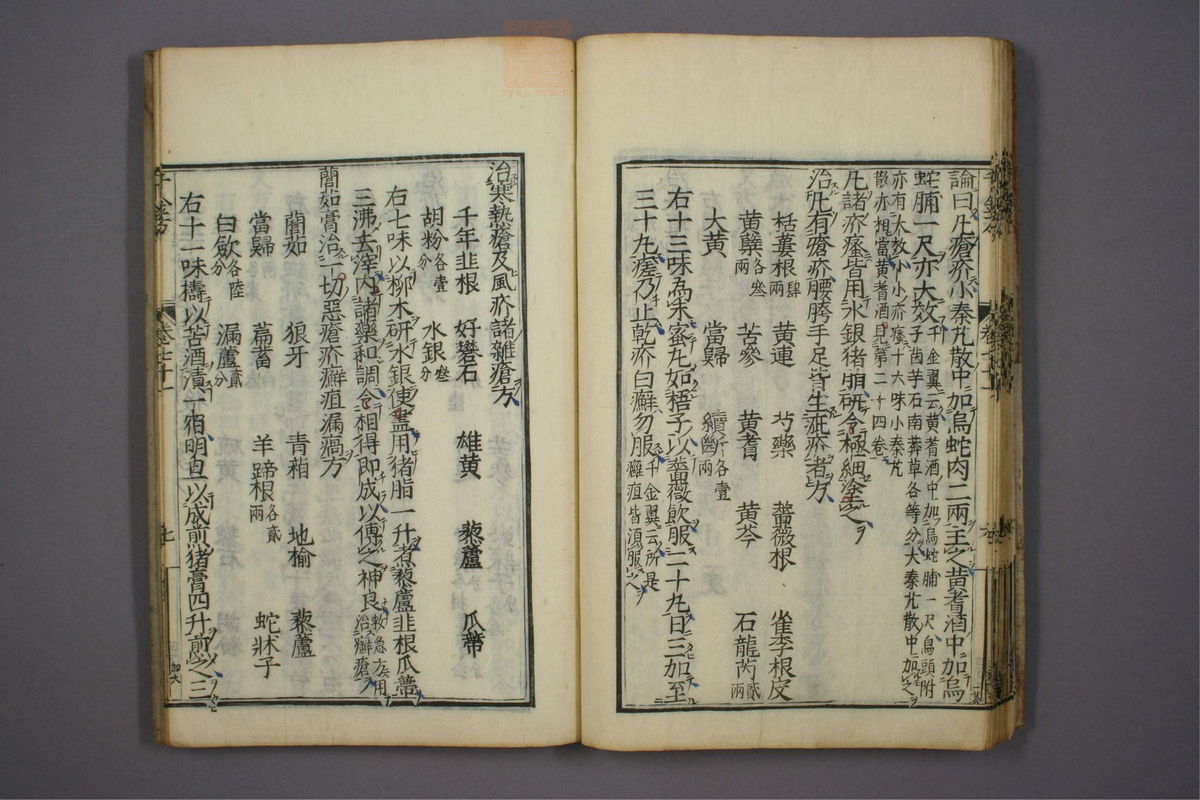 論曰凡瘡疥小秦艽散中加烏蛇肉二兩主之黃耆酒中加烏
蛇脯一尺亦大效千金翼云黃耆酒中加烏蛇脯一尺烏頭附
子茵芋石南莽草各等分大秦艽散中加之
亦有大效小小疥瘙十六味小秦艽
散亦相當黃耆酒見第二十四卷
凡諸疥瘙皆用水銀猪脂研令極細塗之
治凡有瘡疥腰胯手足皆生疵疥者方
栝蔞根肆兩 黃連 芍藥 薔薇根 雀李根皮
黃蘗各叄兩 苦參 黃耆 黃芩 石龍芮貳兩
大黃 當歸 續斷各壹兩
右十三味為末蜜丸如梧子以薔薇飲服二十九日三加至
三十九瘥乃止乾疥白癬勿服千金翼云所是癰疽皆須服之
治寒熱瘡及風疥諸雜瘡方
千年韭根 好礬石 雄黃 藜蘆 瓜蒂
胡粉各壹分 水銀叄分
右七味以柳木研水銀使盡用猪脂一升煮藜蘆韭根瓜蒂
三沸去滓內諸藥和調令相得即成以傅之神良救急方用治癬瘡
䕡茹膏治一切惡瘡疥癬疽漏瘑方
䕡茹 狼牙 青葙 地榆 藜蘆
當歸 萹蓄 羊蹄根各貳兩 蛇牀子
白斂各陸分 漏蘆貳分
右十一味擣以苦酒漬一宿明旦以成煎猪膏四升煎之三